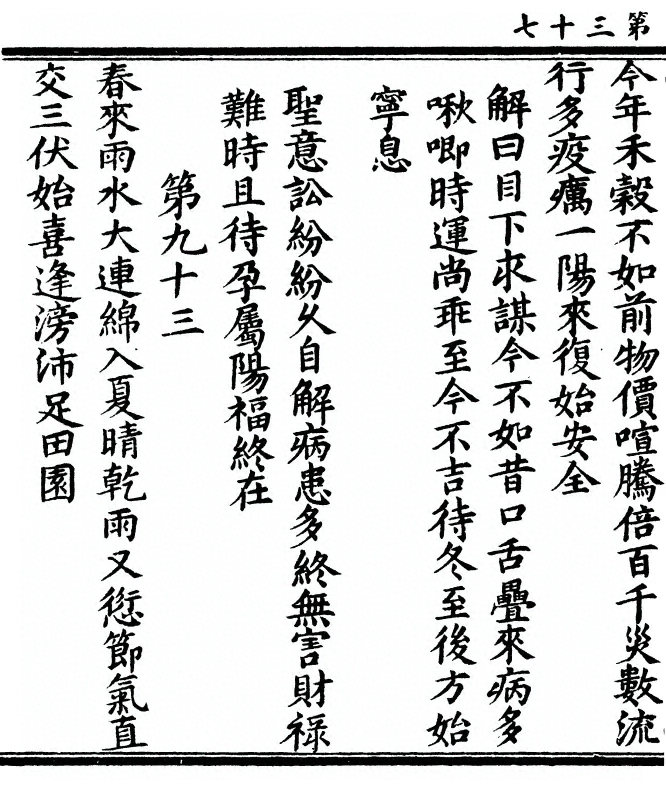 第三十七
今年禾穀不如前物價喧騰倍百千災數流
行多疫癘一陽來復始安全
解曰目下求謀今不如昔口舌疊來病多
啾唧時運尚乖至今不吉待冬至後方始
寧息
聖意訟紛紛久自解病患多終無害財祿
難時且待孕屬陽福終在
第九十三
春來雨水大連綿入夏晴乾雨又愆節氣直
交三伏始喜逢滂沛足田園